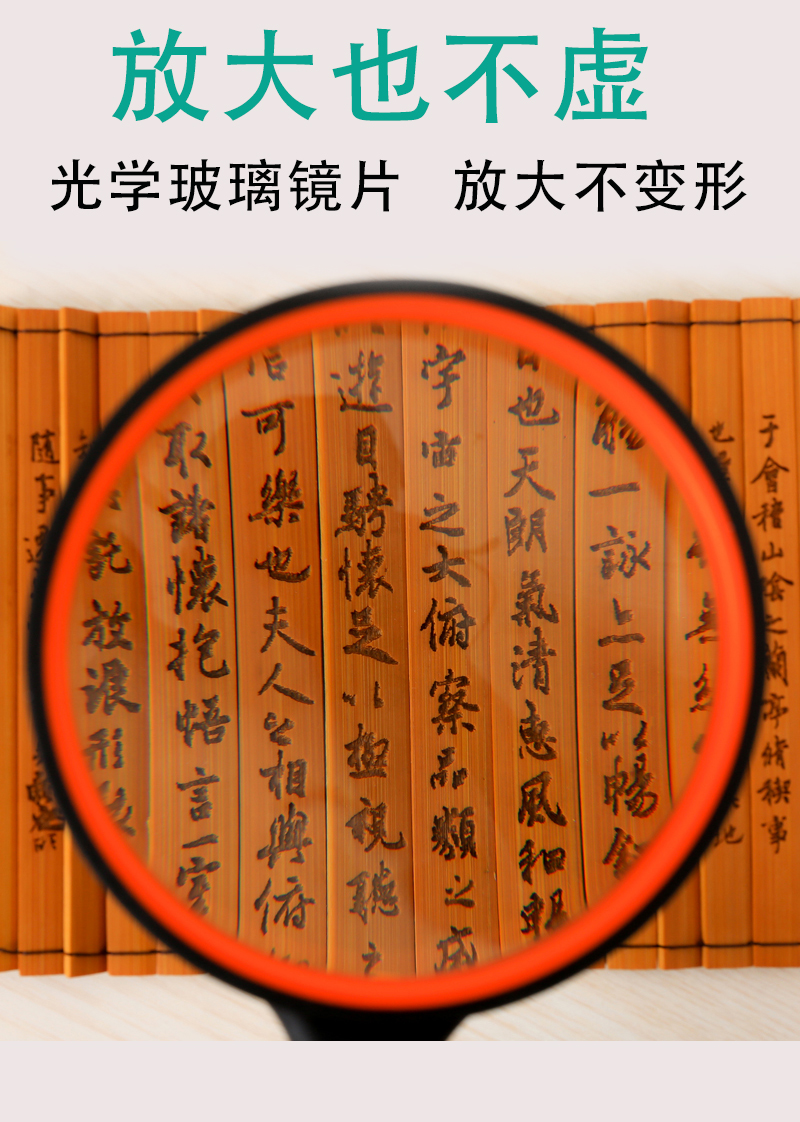 放大也不虚
光学玻璃镜片 放大不变形
于會稽山陰之蘭亭脩稧事
也
無絲
地
觴一詠亦足以暢敘
日也天朗氣清惠風和暢
宇宙之大俯察品類之盛
遊目騁懷足以極視聽之
信可樂也夫人之相與俯
取諸懷抱悟言一室
託放浪形骸
隨事遷